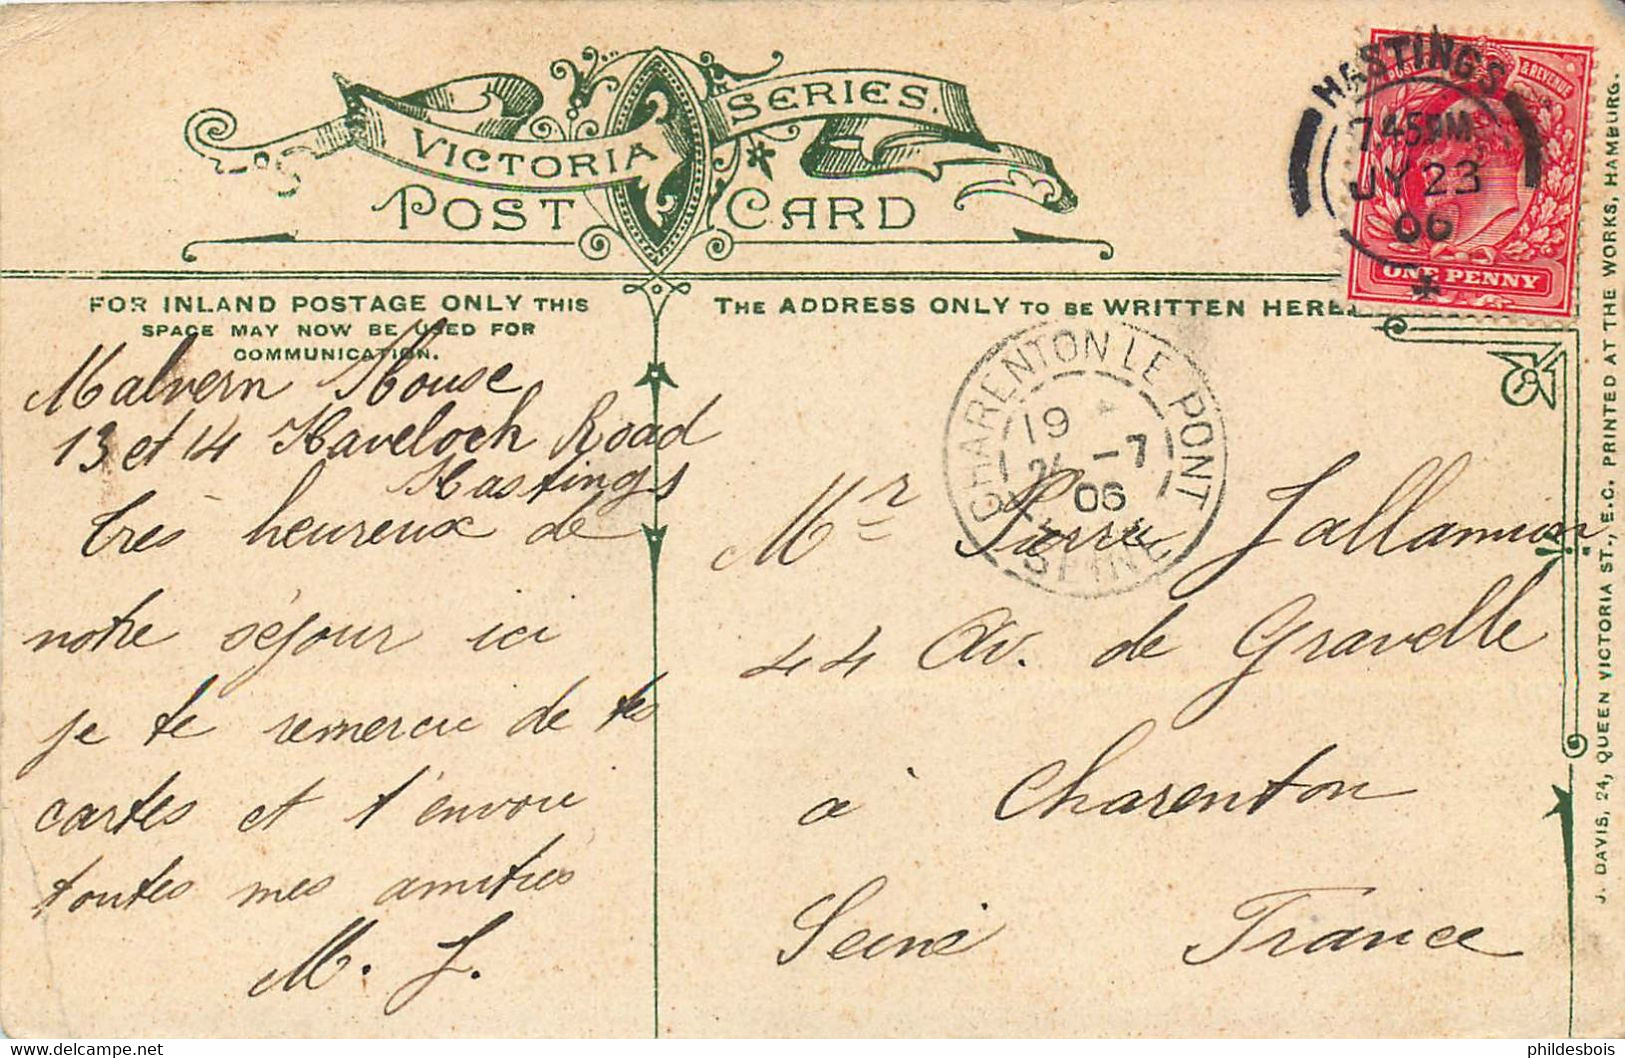 VICTORIA SERIES.
POST CARD
FOR INLAND POSTAGE ONLY THIS
SPACE MAY NOW BE USED FOR
COMMUNICATION.
THE ADDRESS ONLY TO BE WRITTEN HERE.
HASTINGS
7.45PM
JY 23
06
POSTAGE & REVENUE
ONE PENNY
CHARENTON LE PONT
19
24 -7
06
SEINE
Malvern House
13 et 14 Havelock Road
Hastings
très heureux de
notre séjour ici
je te remercie de tes
cartes et t'envoie
toutes mes amitiés
M. J.
Mr Pierre Jallamion
44 Av. de Gravelle
à Charenton
Seine France
J. DAVIS, 24, QUEEN VICTORIA ST., E.C. PRINTED AT THE WORKS, HAMBURG.
phildesbois